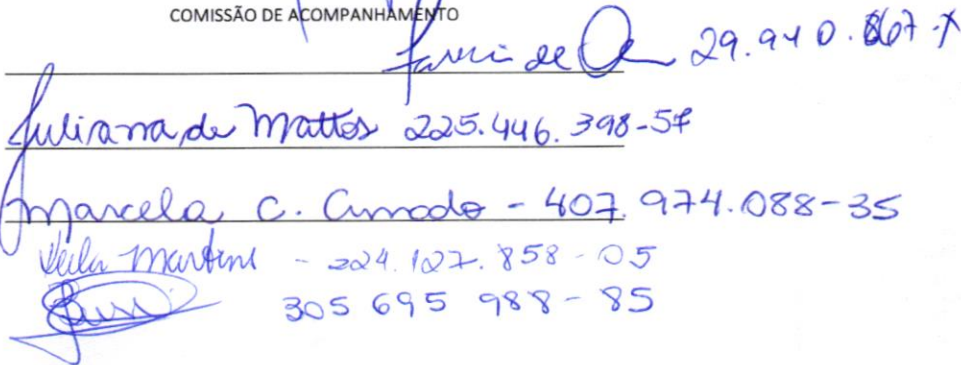 COMISSÃO DE ACOMPANHAMENTO
de 29.940.867-X
Juliana de Mattos 225.446.398-57
Marcela C. - 407.974.088-35
Martins - 224.127.858-05
305 695 988-85